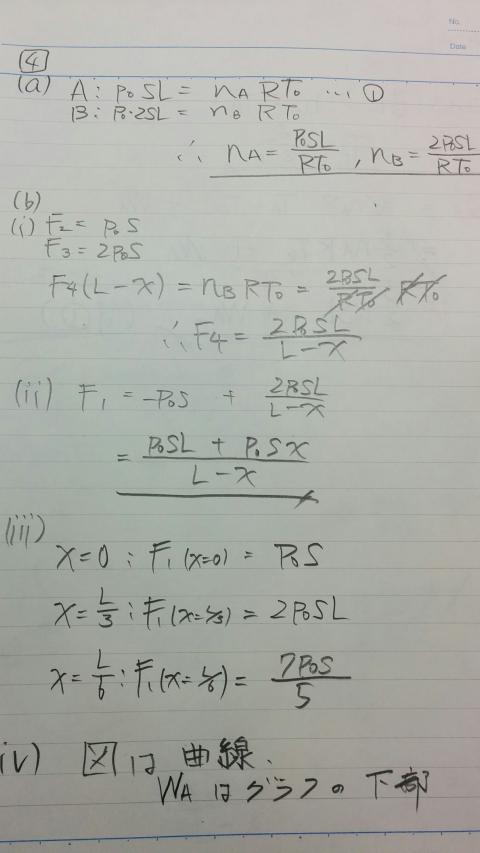 No.
Date
4
(a) A: P₀SL = n_A RT₀ … ①
B: P₀·2SL = n_B RT₀
∴ n_A = P₀SL/RT₀ , n_B = 2P₀SL/RT₀
(b)
(i) F₂ = P₀S
F₃ = 2P₀S
F₄(L-x) = n_B RT₀ = 2P₀SL/RT₀ RT₀
∴ F₄ = 2P₀SL/L-x
(ii) F₁ = -P₀S + 2P₀SL/L-x
= P₀SL + P₀Sx/L-x
(iii)
x=0 : F₁(x=0) = P₀S
x=L/3 : F₁(x=L/3) = 2P₀SL
x=L/6 : F₁(x=L/6) = 7P₀S/5
iv) 図は曲線、
W_A はグラフの下部